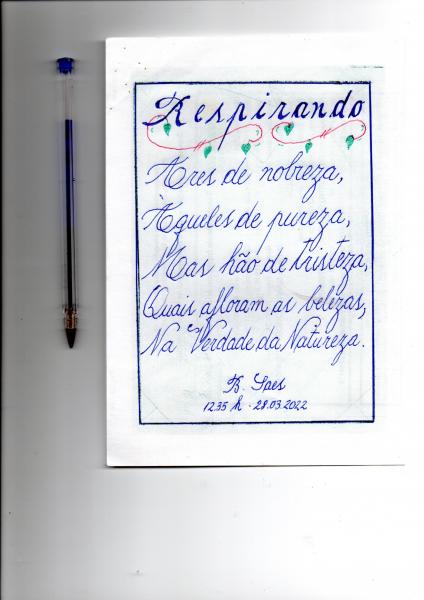 Respirando
Ares de nobreza,
Àqueles de pureza,
Mas hão de tristeza,
Quais afloram as belezas,
Na Verdade da Natureza.
B. Saes
12.35 h - 28.03.2022